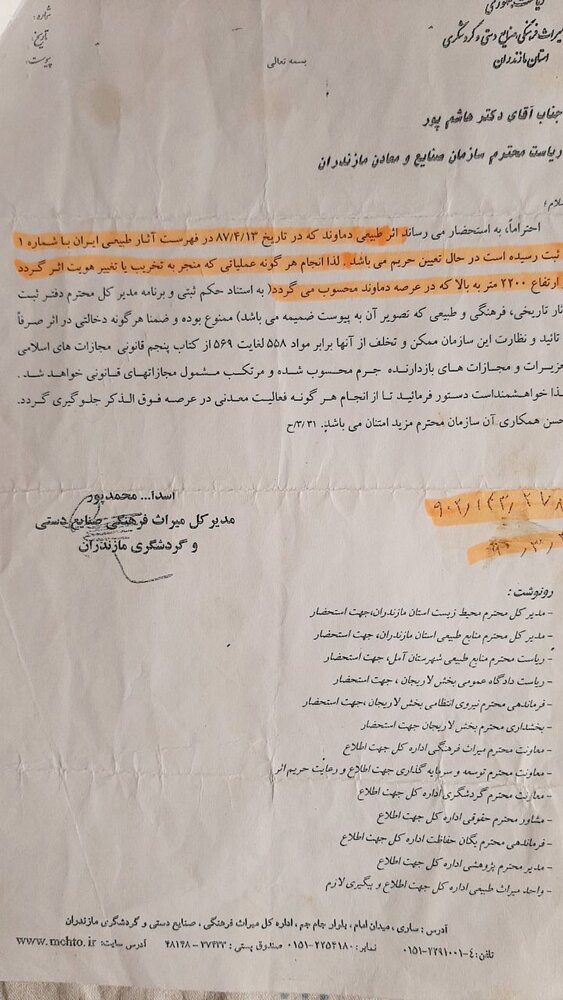 ریاست جمهوری
میراث فرهنگی، صنایع دستی و گردشگری
استان مازندران
بسمه تعالی
شماره:
تاریخ:
پیوست:
جناب آقای دکتر هاشم پور
ریاست محترم سازمان صنایع و معادن مازندران
سلام؛
احتراماً، به استحضار می رساند اثر طبیعی دماوند که در تاریخ ۸۷/۴/۱۳ در فهرست آثار طبیعی ایران با شماره ۱
ثبت رسیده است در حال تعیین حریم می باشد. لذا انجام هر گونه عملیاتی که منجر به تخریب یا تغییر هویت اثر گردد
ارتفاع ۲۲۰۰ متر به بالا که در عرصه دماوند محسوب می گردد( به استناد حکم ثبتی و برنامه مدیر کل محترم دفتر ثبت
ثار تاریخی، فرهنگی و طبیعی که تصویر آن به پیوست ضمیمه می باشد) ممنوع بوده و ضمنا هرگونه دخالتی در اثر صرفاً
تائید و نظارت این سازمان ممکن و تخلف از آنها برابر مواد ۵۵۸ لغایت ۵۶۹ از کتاب پنجم قانونی مجازات های اسلامی
عزیرات و مجازات های بازدارنده جرم محسوب شده و مرتکب مشمول مجازاتهای قانونی خواهد شد .
ذا خواهشمنداست دستور فرمائید تا از انجام هر گونه فعالیت معدنی در عرصه فوق الذکر جلوگیری گردد.
حسن همکاری آن سازمان محترم مزید امتنان می باشد. ۳/۳۱/ح
اسدا... محمدپور
مدیر کل میراث فرهنگی، صنایع دستی
و گردشگری مازندران
رونوشت :
- مدیر کل محترم محیط زیست استان مازندران،جهت استحضار
- مدیر کل محترم منابع طبیعی استان مازندران، جهت استحضار
- ریاست محترم منابع طبیعی شهرستان آمل، جهت استحضار
- ریاست دادگاه عمومی بخش لاریجان ، جهت استحضار
- فرماندهی محترم نیروی انتظامی بخش لاریجان ،جهت استحضار
- بخشداری محترم بخش لاریجان جهت استحضار
- معاونت محترم میراث فرهنگی اداره کل جهت اطلاع
- معاونت محترم توسعه و سرمایه گذاری جهت اطلاع و رعایت حریم اثر
- معاونت محترم گردشگری اداره کل جهت اطلاع
- مشاور محترم حقوقی اداره کل جهت اطلاع
- فرماندهی محترم یگان حفاظت اداره کل جهت اطلاع
- مدیر محترم پژوهشی اداره کل جهت اطلاع
- واحد میراث طبیعی اداره کل جهت اطلاع و پیگیری لازم
آدرس : ساری ، میدان امام ، بلوار جام جم ، اداره کل میراث فرهنگی ، صنایع دستی و گردشگری مازندران
تلفن: ۴-۲۲۹۱۰۰۱-۰۱۵۱ نمابر: ۲۲۵۴۱۸۰-۰۱۵۱ صندوق پستی : ۳۷۴۳۳ - ۴۸۱۴۸ آدرس سایت: www.mchto.ir